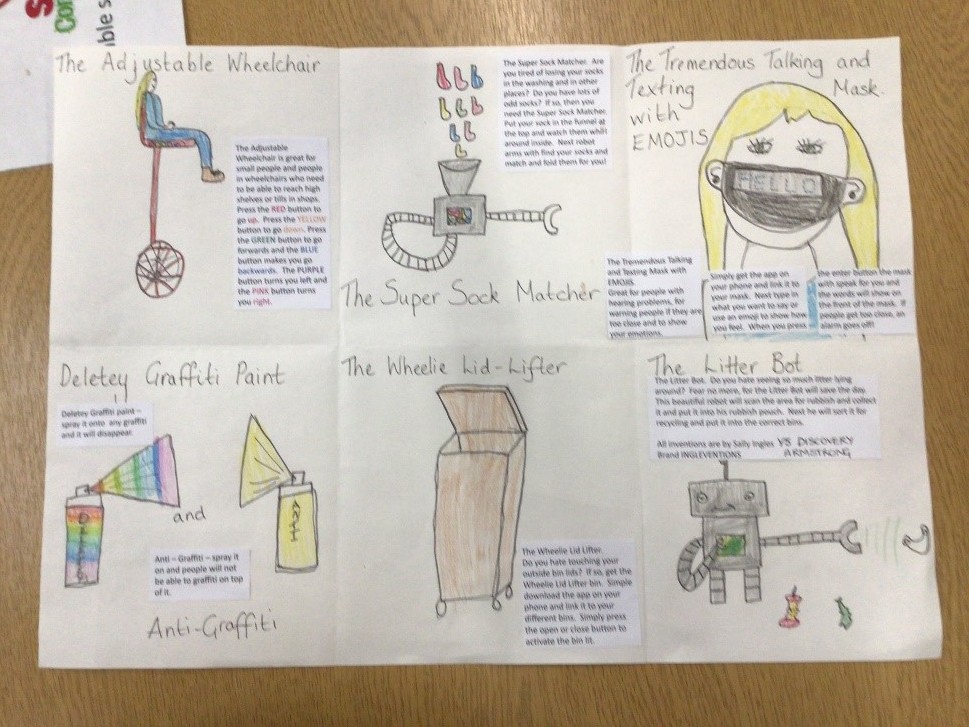 S
Con
ble s
The Adjustable Wheelchair
The Adjustable
Wheelchair is great for
small people and people
in wheelchairs who need
to be able to reach high
shelves or tills in shops.
Press the RED button to
go up. Press the YELLOW
button to go down. Press
the GREEN button to go
forwards and the BLUE
button makes you go
backwards. The PURPLE
button turns you left and
the PINK button turns
you right.
The Super Sock Matcher. Are
you tired of losing your socks
in the washing and in other
places? Do you have lots of
odd socks? If so, then you
need the Super Sock Matcher.
Put your sock in the funnel at
the top and watch them whirl
around inside. Next robot
arms with find your socks and
match and fold them for you!
The Super Sock Matcher
The Tremendous Talking and
Texting Mask.
with
EMOJIS
HELLO
The Tremendous Talking
and Texting Mask with
EMOJIS.
Great for people with
hearing problems, for
warning people if they are
too close and to show
your emotions.
Simply get the app on
your phone and link it to
your mask. Next type in
what you want to say or
use an emoji to show how
you feel. When you press
the enter button the mask
with speak for you and
the words will show on
the front of the mask. If
people get too close, an
alarm goes off!
Deletey Graffiti Paint
Deletey Graffiti paint –
spray it onto any graffiti
and it will disappear.
and
ANTI
Anti – Graffiti – spray it
on and people will not
be able to graffiti on top
of it.
Anti-Graffiti
The Wheelie Lid-Lifter
The Wheelie Lid Lifter.
Do you hate touching your
outside bin lids? If so, get the
Wheelie Lid Lifter bin. Simple
download the app on your
phone and link it to your
different bins. Simply press
the open or close button to
activate the bin lit.
The Litter Bot
The Litter Bot. Do you hate seeing so much litter lying
around? Fear no more, for the Litter Bot will save the day.
This beautiful robot will scan the area for rubbish and collect
it and put it into his rubbish pouch. Next he will sort it for
recycling and put it into the correct bins.
All inventions are by Sally Ingles Y5 DISCOVERY
Brand INGLEVENTIONS ARMSTRONG